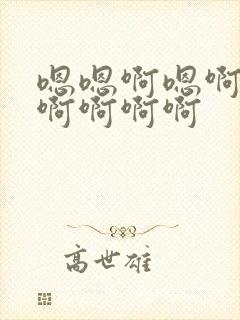 嗯嗯啊嗯啊
啊啊啊啊
高世雄